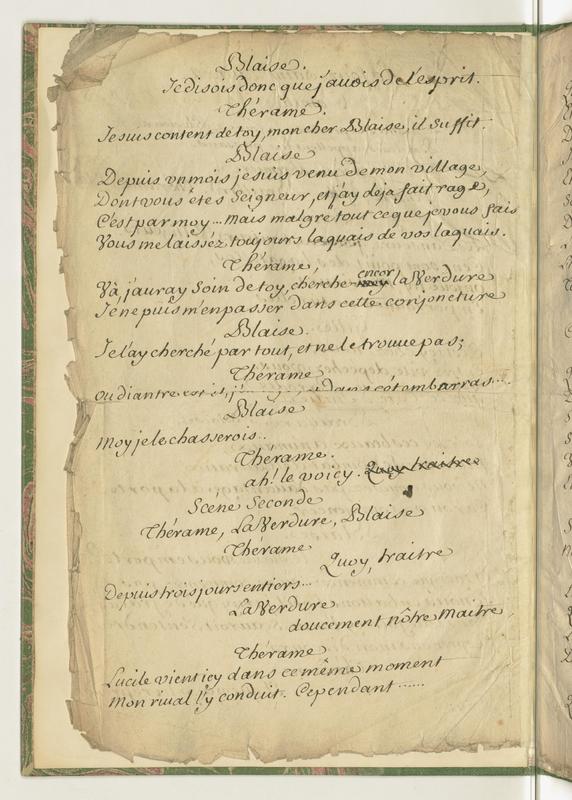 Blaise.
Je disois donc que j'auois de l'esprit.
Thérame.
Je suis content de toy, mon cher Blaise, il suffit.
Blaise
Depuis vn mois je suis venu de mon village,
Dont vous étes Seigneur, et j'ay deja fait rage,
C'est par moy... mais malgré tout ce que je vous fais
Vous me laissez toujours laquais de vos laquais.
Thérame,
Và, j'auray soin de toy, cherche encor la Verdure
Je ne puis m'en passer dans cette conjoncture
Blaise.
Je l'ay cherché par tout, et ne le trouue pas;
Thérame
ou diantre est il, dans cét embarras...
Blaise
Moy je le chasserois..
Thérame.
ah! le voicy. Quoy traitre
Scéne Seconde
Thérame, La Verdure, Blaise
Thérame
Quoy, traitre
Depuis trois jours entiers...
La Verdure
doucement nôtre maitre
Thérame
Lucile vient icy dans ce même moment
Mon riual l'y conduit. Cependant ......